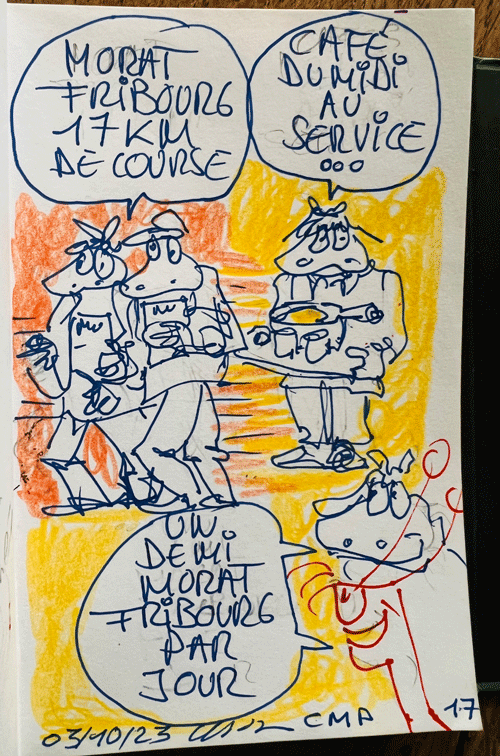 MORAT
FRIBOURG
17 KM
DE COURSE
CAFÉ
DU MIDI
AU
SERVICE
...
UN
DEMI
MORAT
FRIBOURG
PAR
JOUR
03/10/23
CMP
17